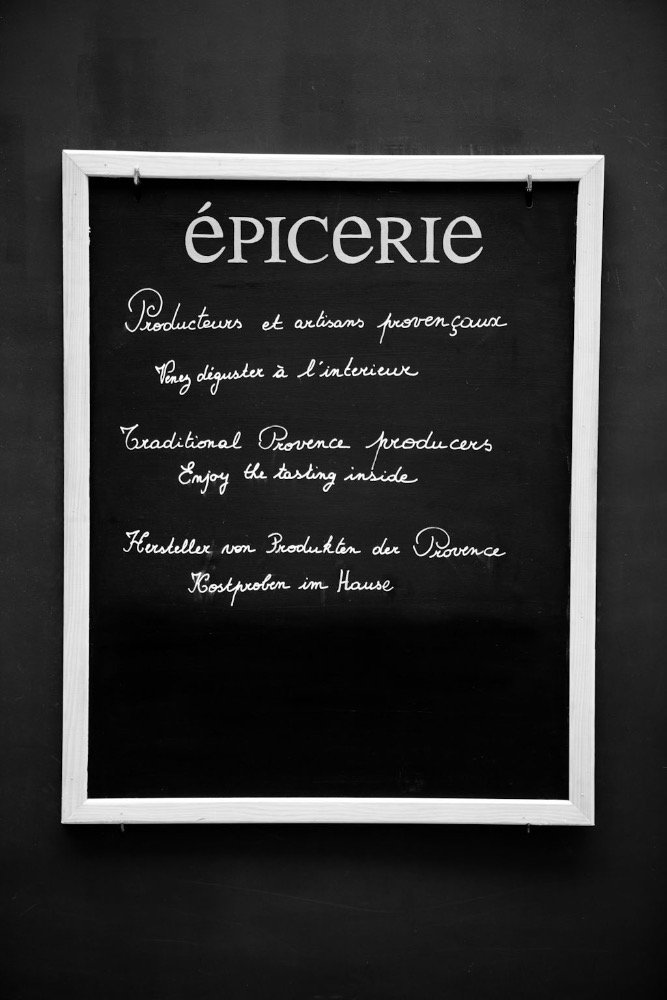 éPICeRIe
Producteurs et artisans provençaux
Venez déguster à l'interieur
Traditional Provence producers
Enjoy the tasting inside
Hersteller von Produkten der Provence
Kostproben im Hause